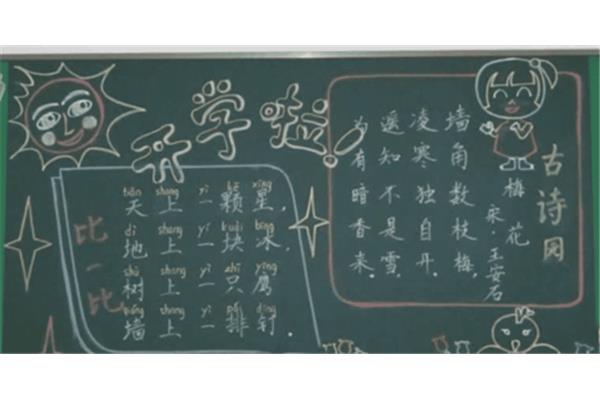 开学啦！
比一比
tiān shang yì kē xīng
天上一颗星，
dì shang yí kuài bīng
地上一块冰，
shù shang yì zhī yīng
树上一只鹰，
qiáng shang yì pái dīng
墙上一排钉。
古诗园
梅花
宋·王安石
墙角数枝梅，
凌寒独自开。
遥知不是雪，
为有暗香来。